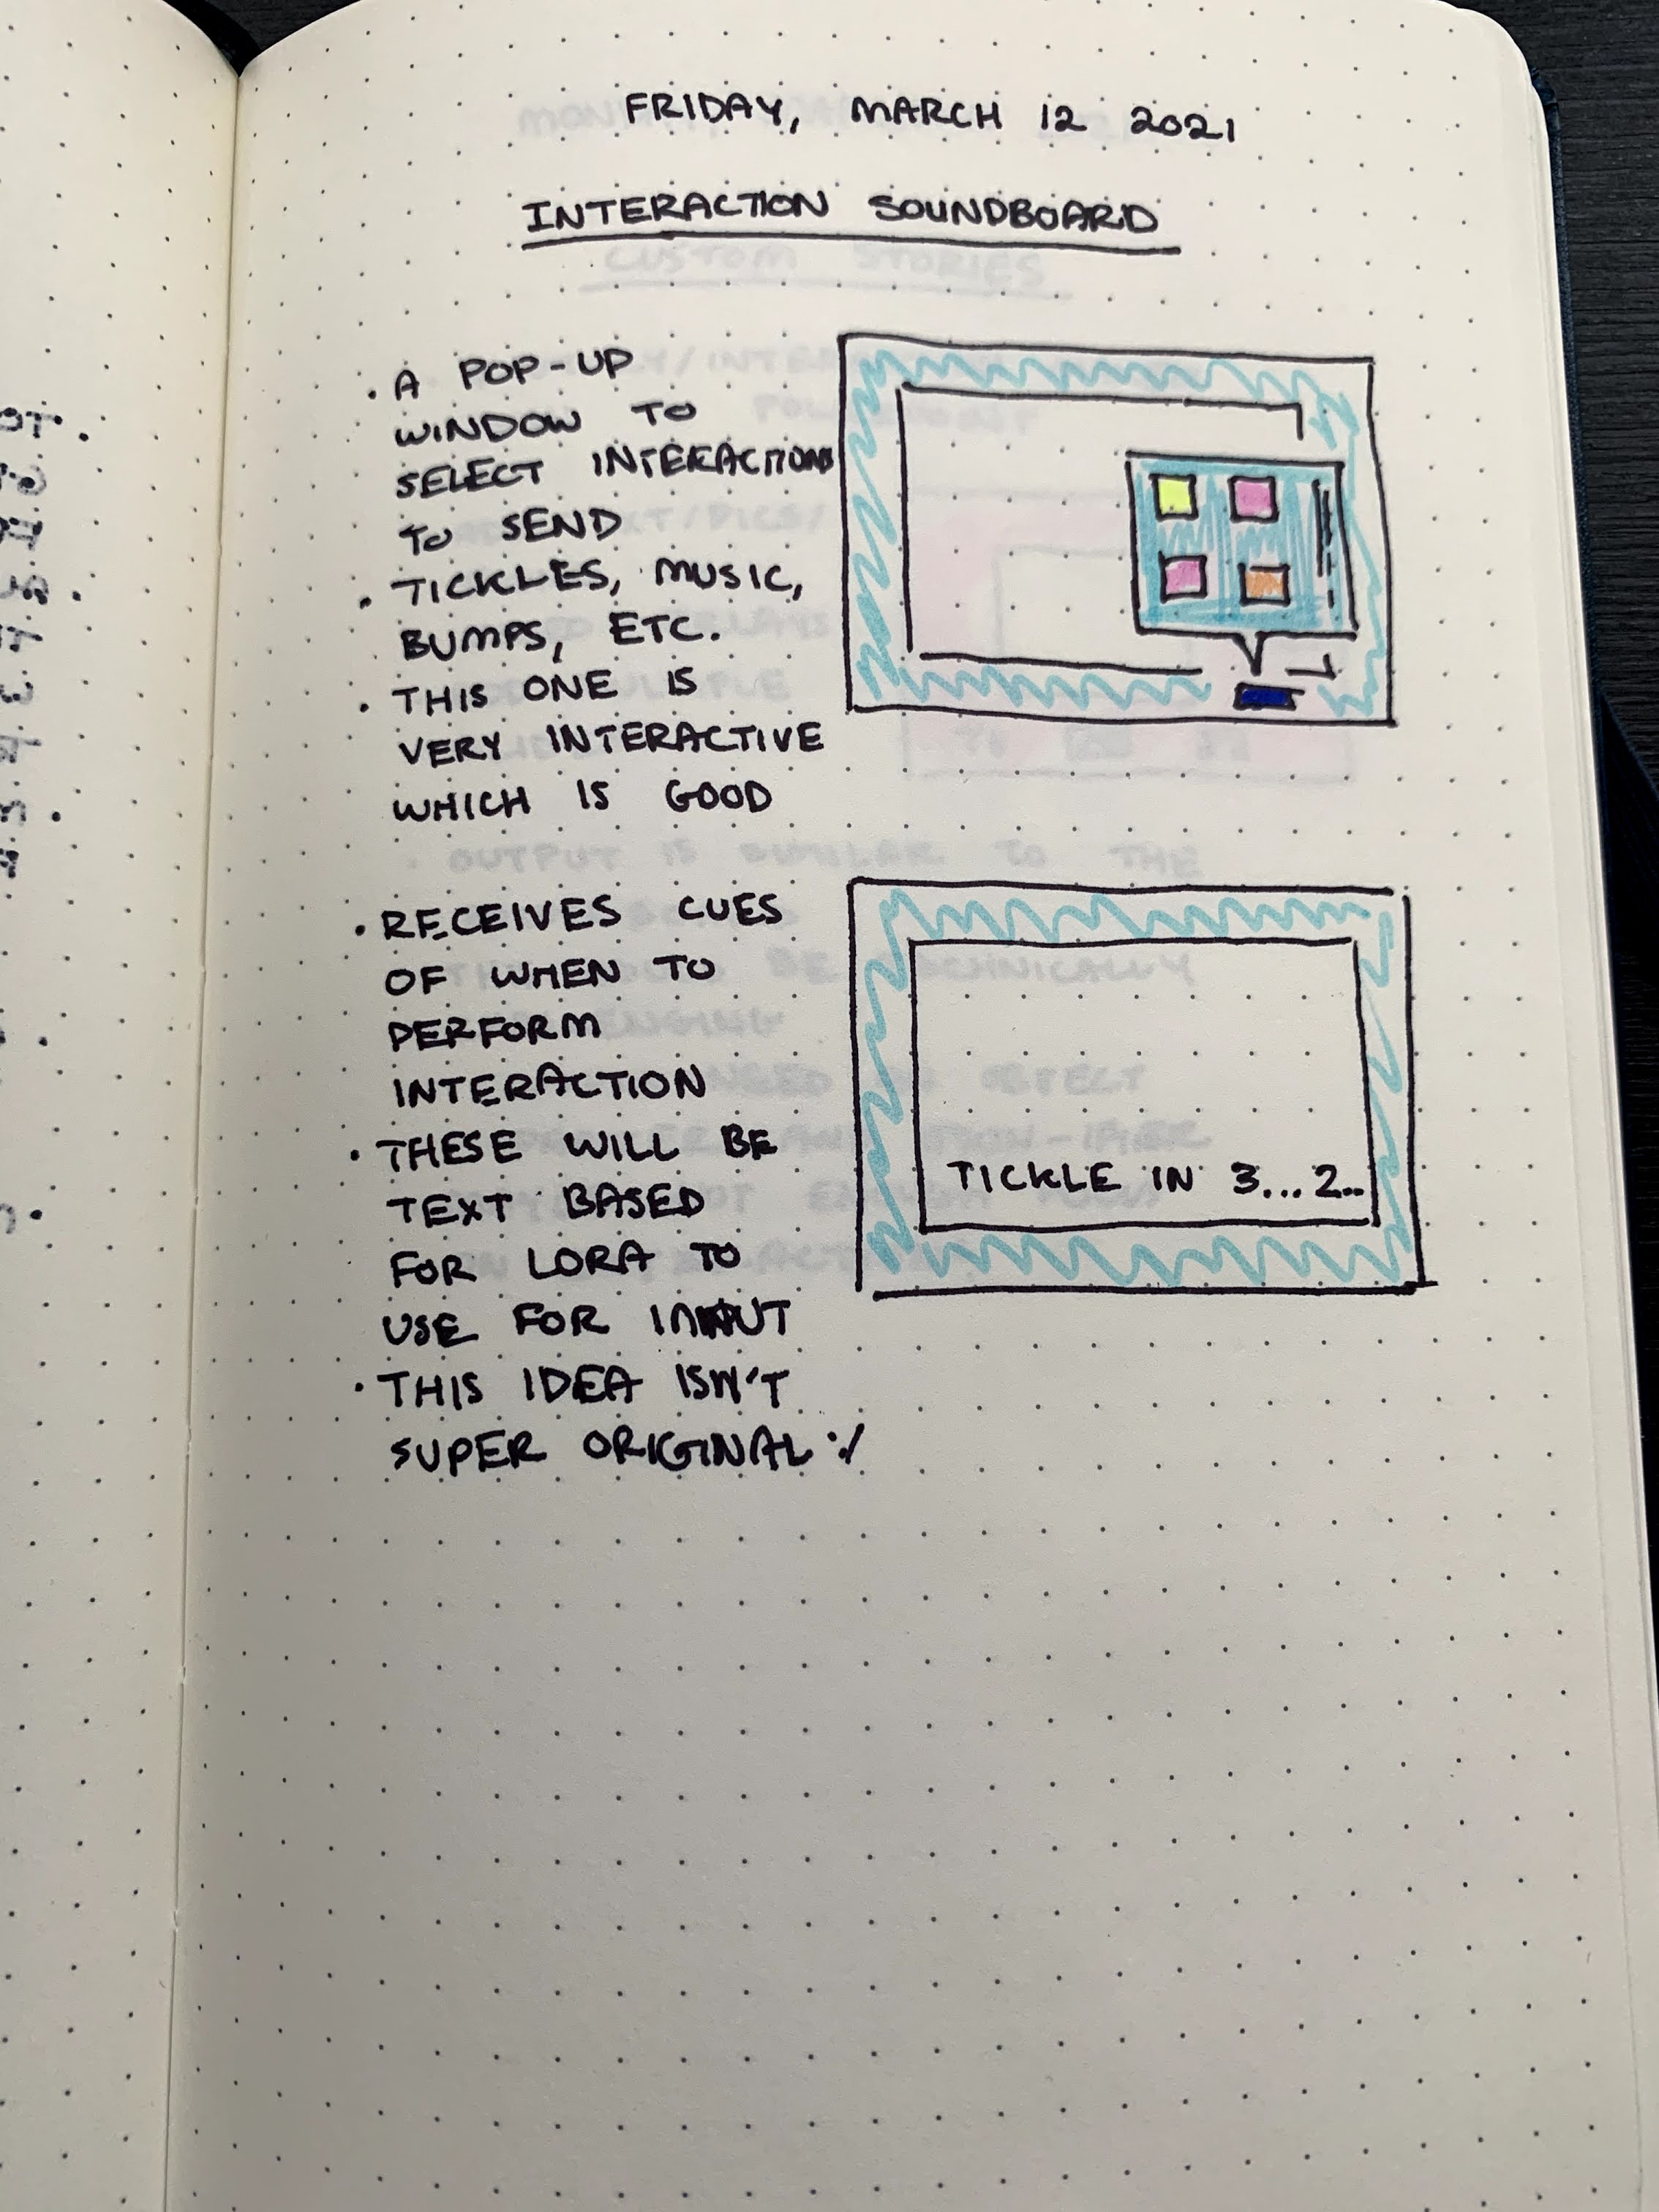 FRIDAY, MARCH 12 2021
INTERACTION SOUNDBOARD
• A POP-UP
WINDOW TO
SELECT INTERACTIONS
TO SEND
• TICKLES, MUSIC,
BUMPS, ETC.
• THIS ONE IS
VERY INTERACTIVE
WHICH IS GOOD
• RECEIVES CUES
OF WHEN TO
PERFORM
INTERACTION
• THESE WILL BE
TEXT BASED
FOR LORA TO
USE FOR INPUT
• THIS IDEA ISN'T
SUPER ORIGINAL :/
TICKLE IN 3...2..